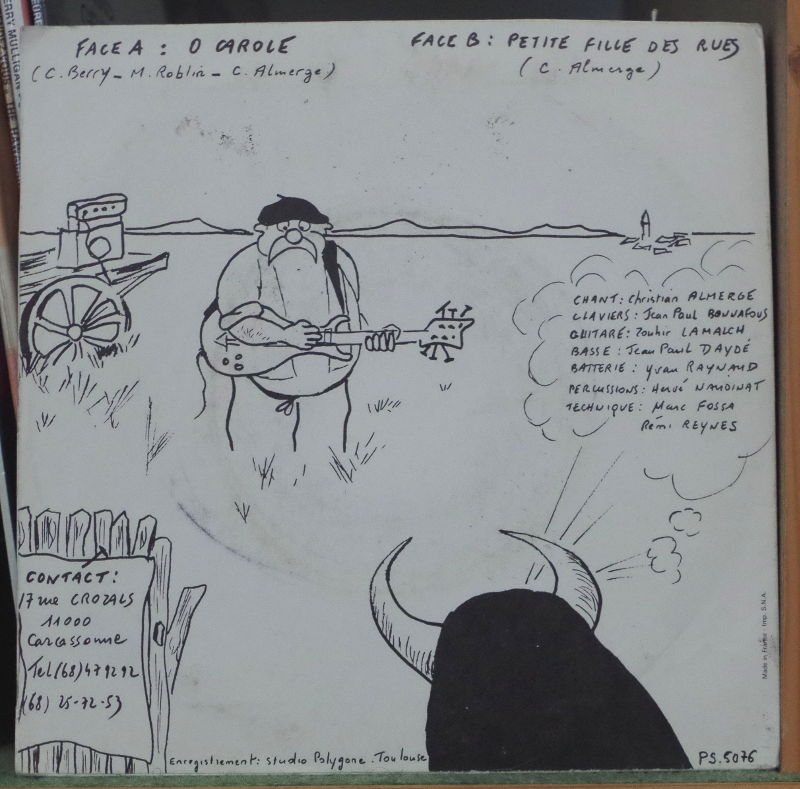 FACE A : O CAROLE
(C. Berry - M. Roblin - C. Almerge)
FACE B : PETITE FILLE DES RUES
(C. Almerge)
CHANT : Christian ALMERGE
CLAVIERS : Jean Paul BONNAFOUS
GUITARE : Zouhir LAMALCH
BASSE : Jean Paul DAYDÉ
BATTERIE : Yvan RAYNAUD
PERCUSSIONS : Hervé NAUDINAT
TECHNIQUE : Marc FOSSA
Rémi REYNES
CONTACT :
17 rue CROZALS
11000
Carcassonne
Tel (68) 47 92 92
(68) 25-72-53
Enregistrement : Studio Polygone . Toulouse
PS.5076
Made in France - Imp. S.N.A.